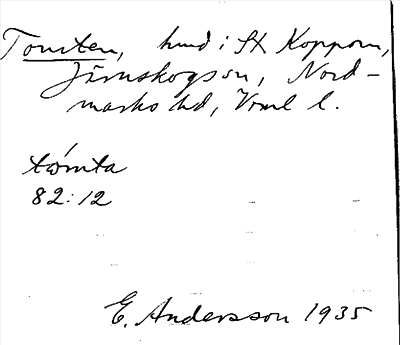 Tomten, hmd i St Koppom,
Järnskogs sn, Nord-
marks hd, Vrml l.
tωmta
82:12
E. Andersson 1935